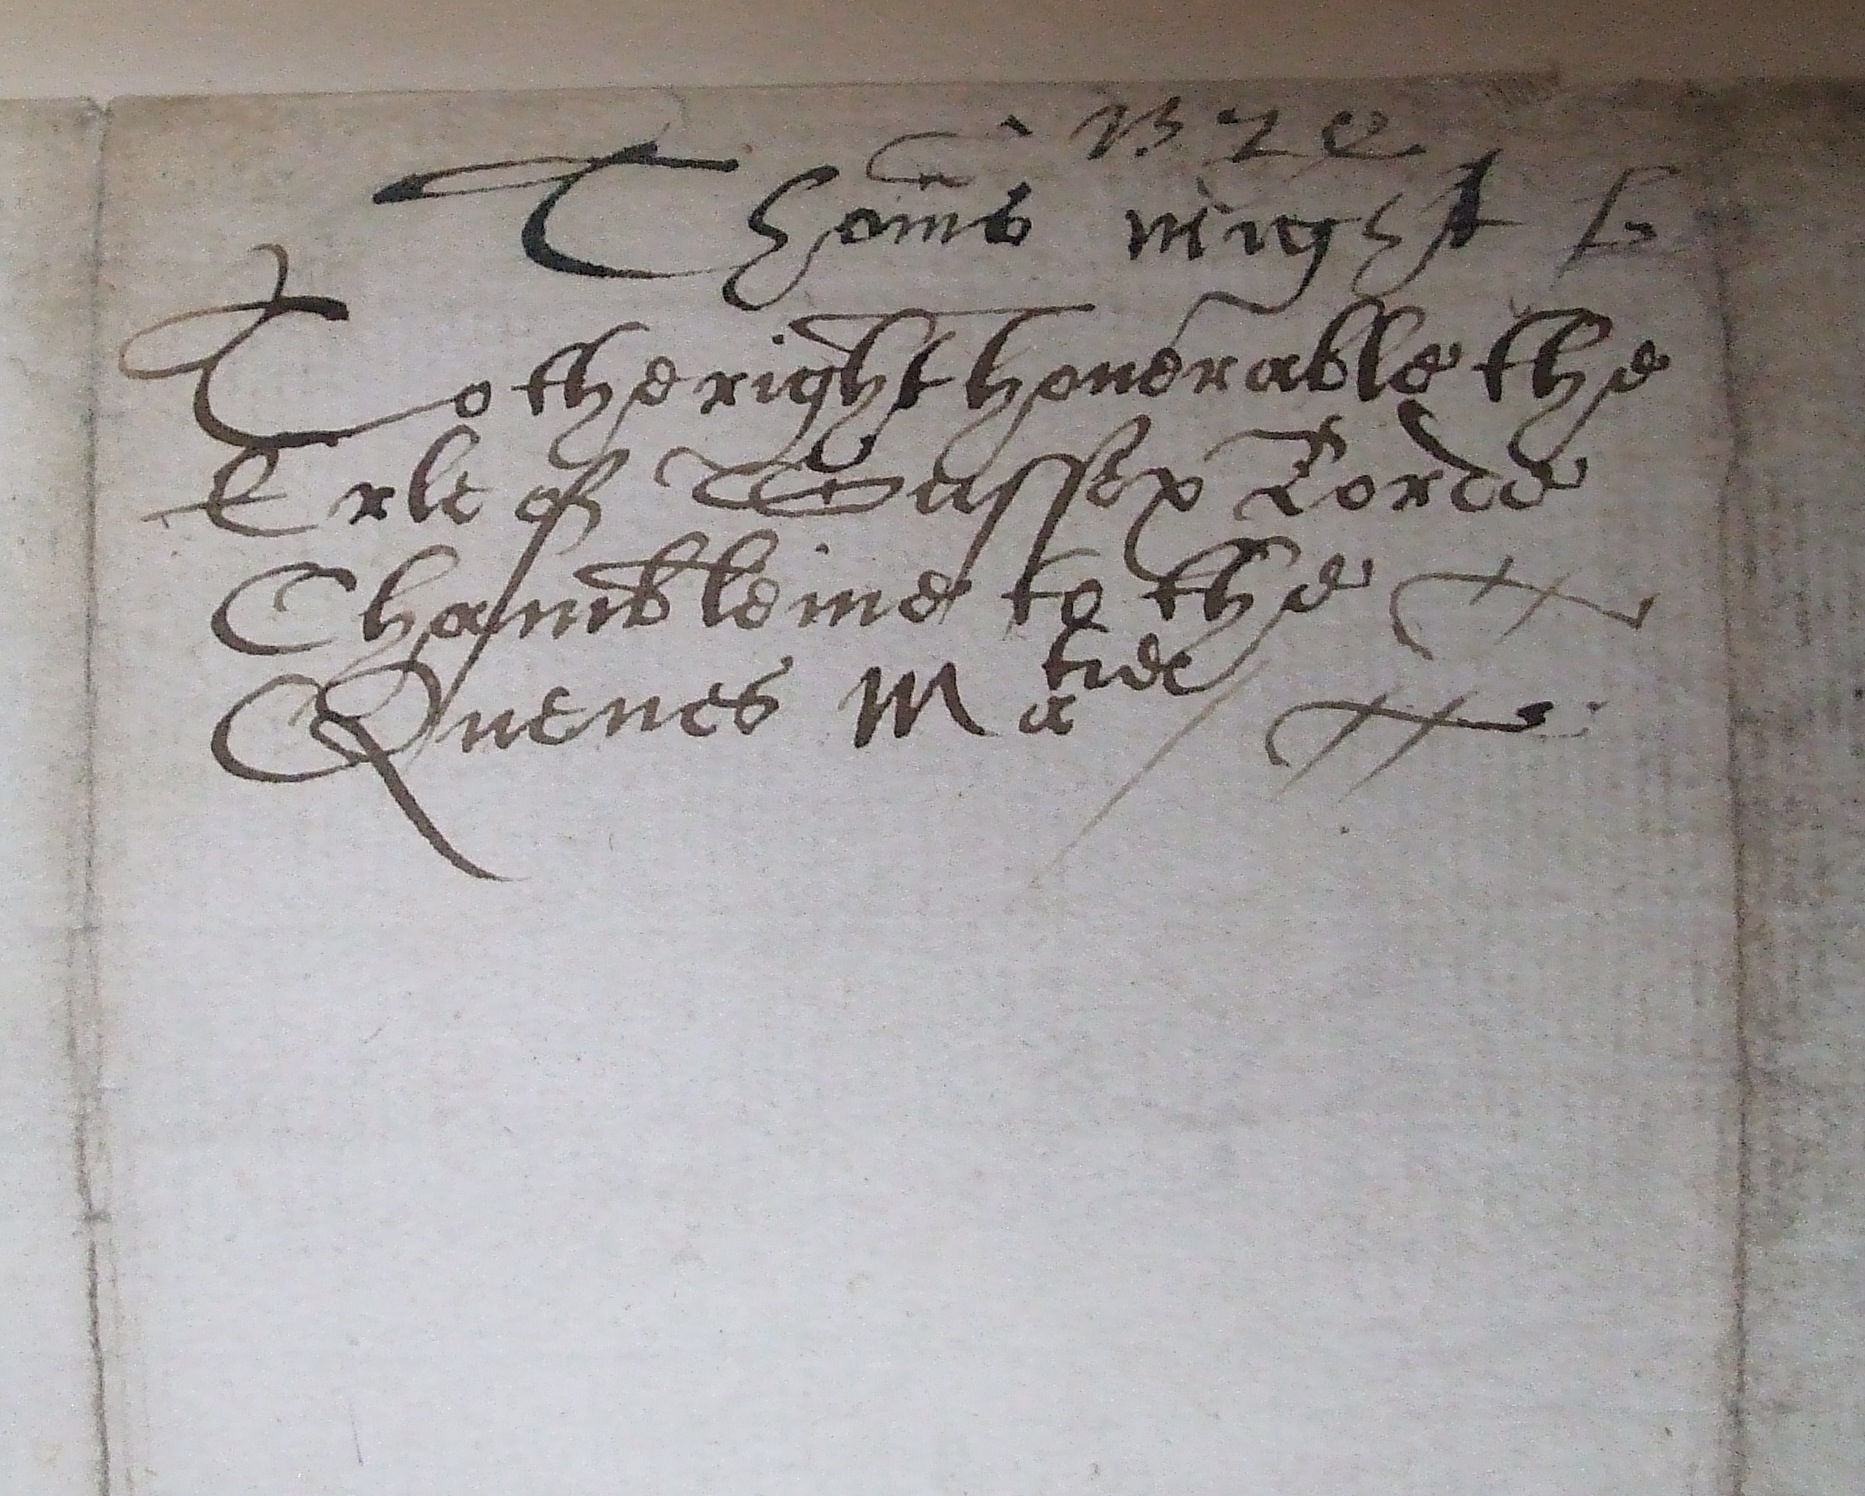 Thom̃s
To the right honerable the
Erle of Sussex Lorde
Chambleine to the
Quenes Matie